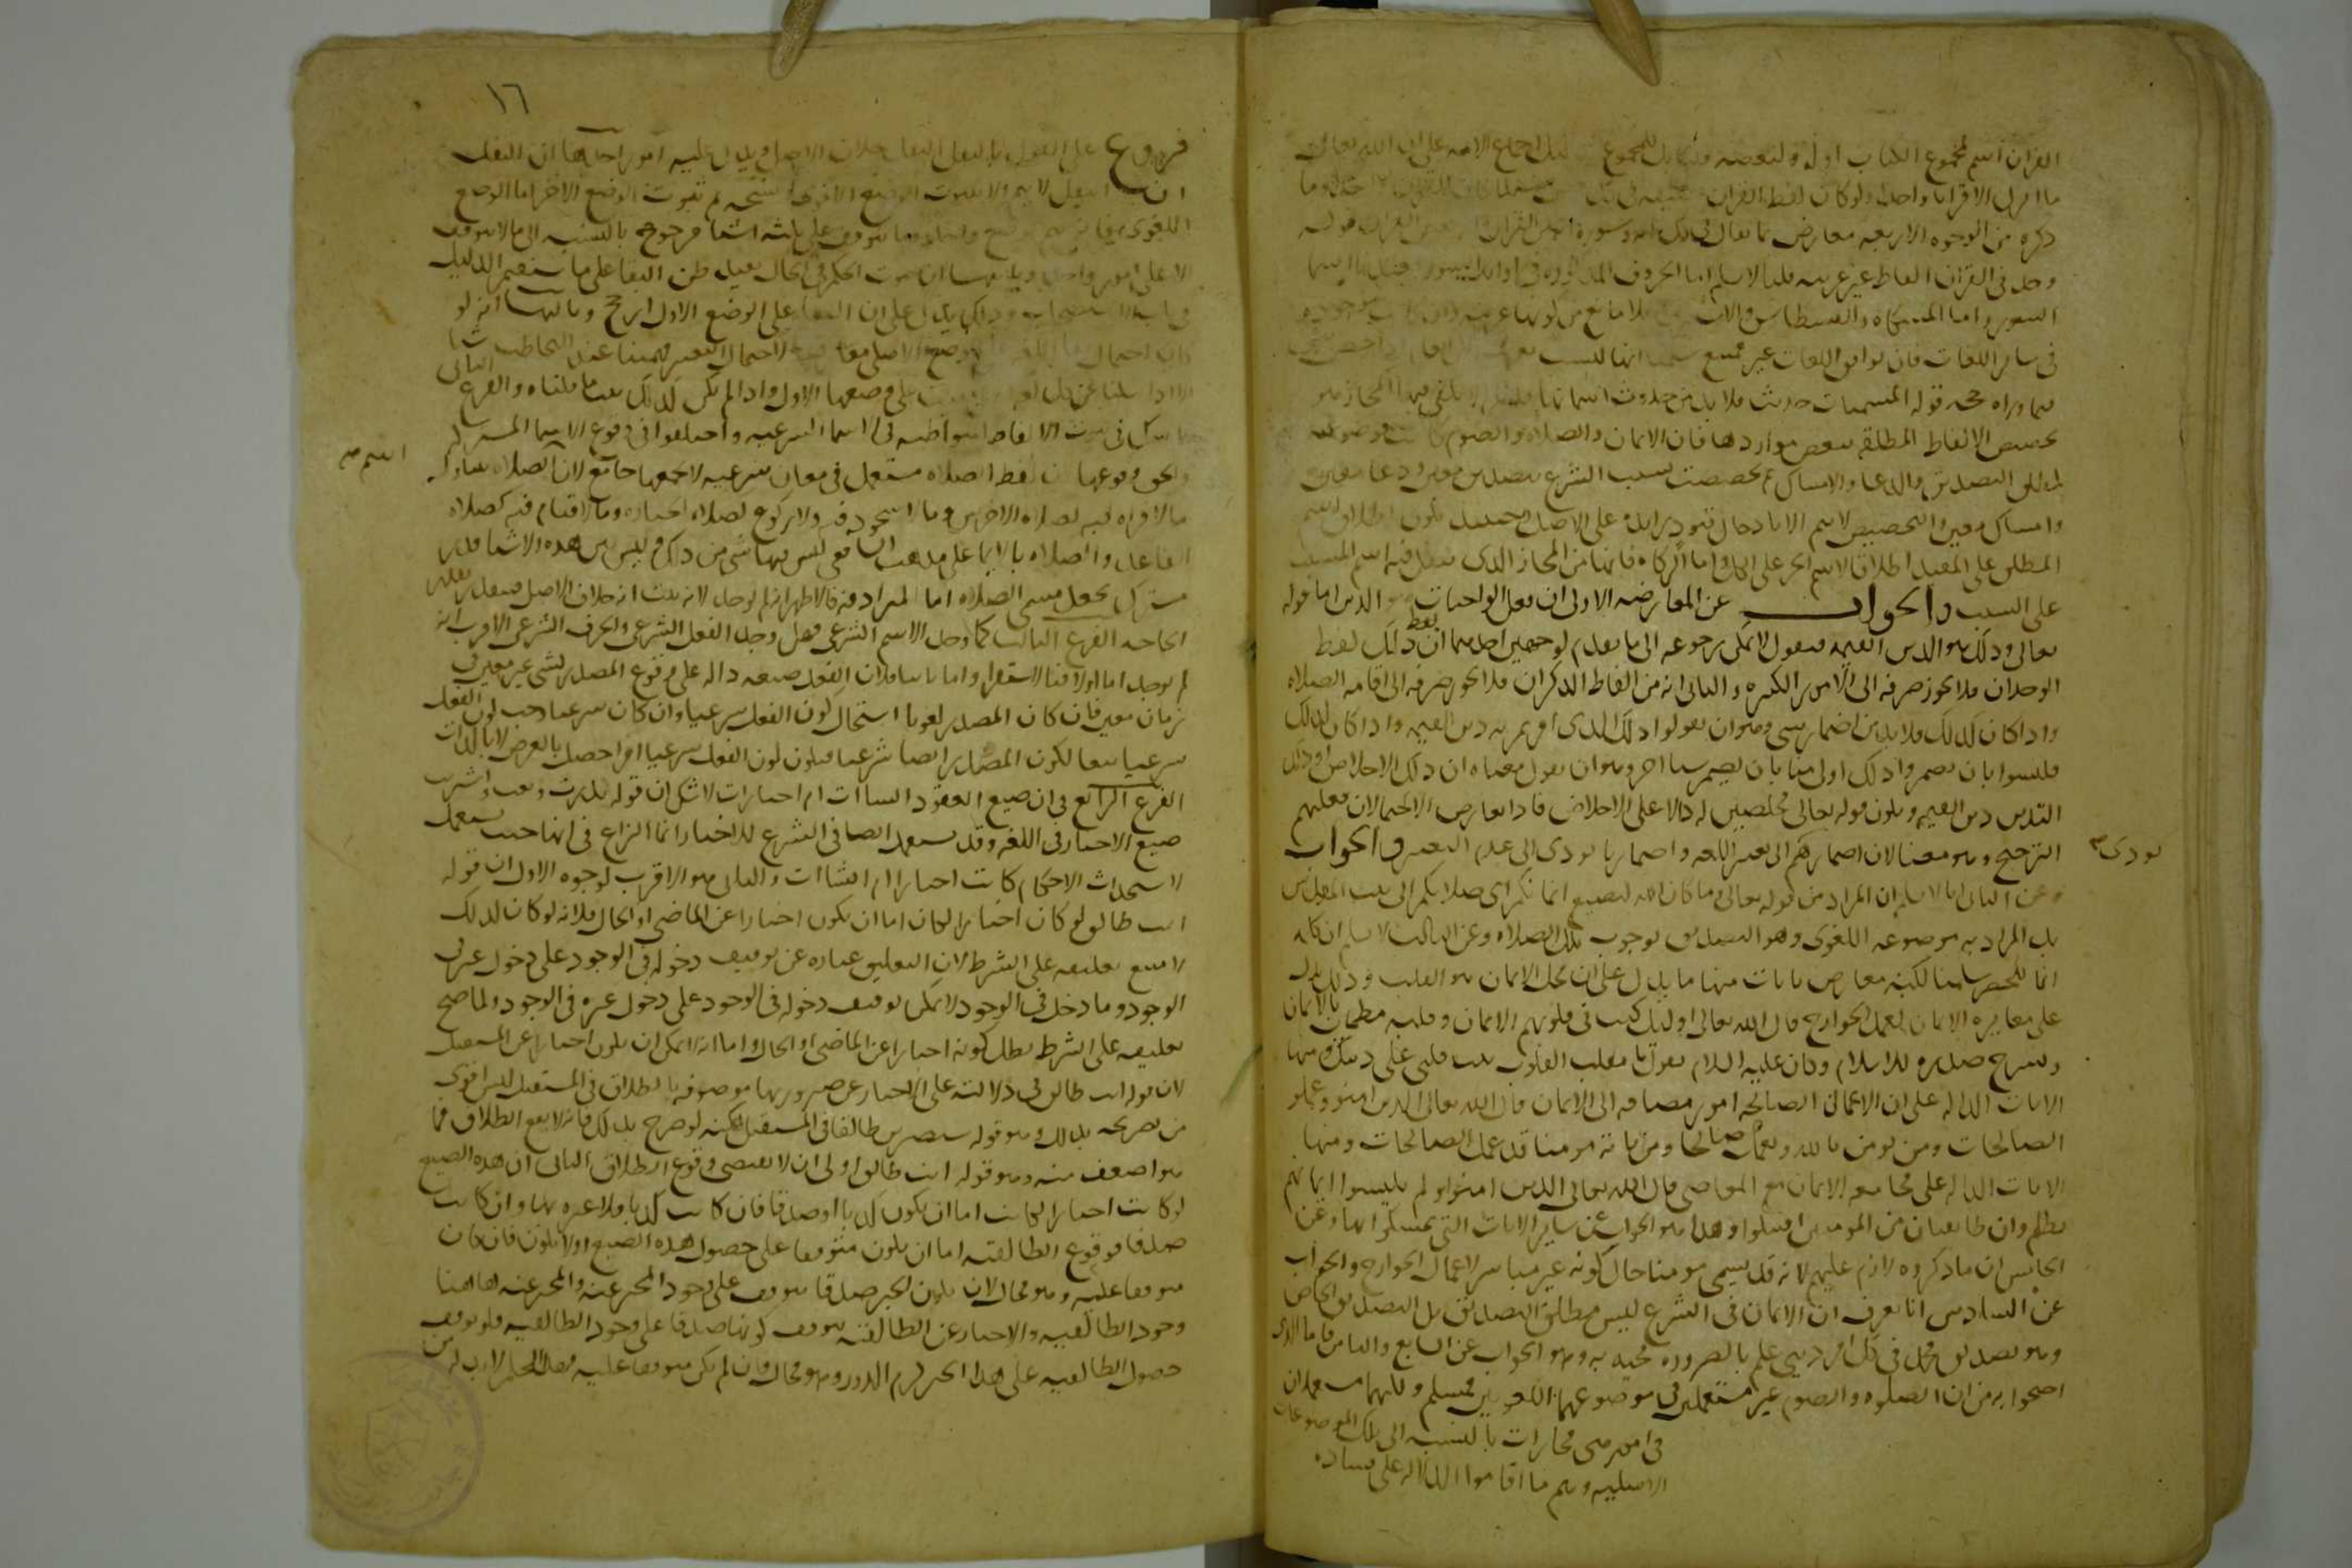 القران اسم لمجموع الكتاب اوله ولبعضه ولنا بل للمجموع بدليل اجماع الامه على ان الله تعالى
ما انزل الا قرانا واحدا ولو كان لفظ القران
ذكره من الوجوه الاربعه معارض بما يقال في كل ايه وسورة انه بعض القران قوله
وجد في القران الفاظ غير عربيه قلنا لا نسلم اما الحروف المذكوره في اوايل السور فعندنا انها اسما
السور واما المشكاه والقسطاس والاستبرق فلا مانع من كونها عربيه وان كانت موجوده
في ساير اللغات فان توافق اللغات غير ممتنع سلمنا انها ليست بعربيه لكن العام اذا خص يبقى
فيما وراه حجه قوله المسميات حدثت فلا بد من حدوث اسمائها قلنا لم لا يكفي فيها المجاز وهو
تخصيص الالفاظ المطلقه ببعض مواردها فان الايمان والصلاه والصوم كانت موضوعه
لمطلق التصديق والدعا والامساك ثم تخصصت بسبب الشرع بتصديق معين ودعا معين
وامساك معين والتخصيص لا يتم الا بادخال قيود زايده على الاصل وحينيذ يكون اطلاق اسم
المطلق على المقيد اطلاقا لاسم الجز على الكل واما الزكاه فانها من المجاز الذي ينقل فيه اسم المسبب
على السبب والجواب عن المعارضه الاولى ان فعل الواجبات هو الدين اما قوله
تعالى وذلك هو الدين القيمه فنقول لا يمكن رجوعه الى ما تقدم لوجهين احدهما ان ذلك لفظ
الوحدان فلا يجوز صرفه الى الامور الكثيره والثاني انه من الفاظ الذكران فلا يجوز صرفه الى اقامه الصلاه
واذا كان كذلك فلا بد من اضمار شي وهو ان يقولوا ذلك الذي امرتم به دين القيمه واذا كان كذلك
فليسوا بان يضمروا ذلك اولى منا بان نضمر شيا اخر وهو ان نقول معناه ان ذلك الاخلاص او ذلك
التدين دين القيمه ويكون قوله تعالى مخلصين له دالا على الاخلاص فاذا تعارض الاحتمالان فعليهم
الترجيح وهو معنا لان اضمارهم الى تغيير اللغه واضمارنا يودي الى عدم التغيير والجواب
يودي
وعن الثاني انا لا نسلم ان المراد من قوله تعالى وما كان الله ليضيع ايمانكم اي صلاتكم الى بيت المقدس
بل المراد به موضوعه اللغوي وهو التصديق بوجوب تلك الصلاه وعن الثالث لا نسلم ان كلمه
انما للحصر سلمنا لكنه معارض بايات منها ما يدل على ان محل الايمان هو القلب وذلك يدل
على مغايره الايمان لعمل الجوارح قال الله تعالى اوليك كتب في قلوبهم الايمان وقلبه مطمئن بالايمان
ويشرح صدره للاسلام وكان عليه السلام يقول يا مقلب القلوب ثبت قلبي على دينك ومنها
الايات الداله على ان الاعمال الصالحه امور مضافه الى الايمان قال الله تعالى الذين امنوا وعملوا
الصالحات ومن يومن بالله ويعمل صالحا ومن ياته مومنا قد عمل الصالحات ومنها
الايات الداله على مجامعه الايمان مع المعاصي قال الله تعالى الذين امنوا ولم يلبسوا ايمانهم
بظلم وان طايفتان من المومنين اقتتلوا وهذا هو الجواب عن ساير الايات التي تمسكوا بها وعن
الخامس ان ما ذكروه لازم عليهم لانه قد يسمى مومنا حال كونه غير مباشر لاعمال الجوارح والجواب
عن السادس انا نعرف ان الايمان في الشرع ليس مطلق التصديق بل التصديق الخاص
وهو تصديق محمد في كل امر ديني علم بالضروره مجيه به وهو الجواب عن السابع والثامن فاما الذي
احتجوا به من ان الصلوه والصوم غير مستعملين في موضوعهما اللغويين فمسلم ولكنهما مستعملان
في امور هي مجازات بالنسبه الى تلك الموضوعات
الاصليه وهم ما اقاموا الدلاله على فساده
١٦
فروع على القول بالنقل النقل خلاف الاصل ويدل عليه امور احدها ان النقل
النقل لا يتم الا بثبوت الوضع اللغوي ثم نسخه ثم ثبوت الوضع الاخر اما الوضع
اللغوي
الا على امور واحد وثانيها ان ثبوت الحكم في الحال يفيد ظن البقا على ما سنقيم الدليل
وذلك يدل على ان البقا على الوضع الاول ارجح وثالثها انه لو
كان احتمال
الا اذا سالنا عن كل لفظ هل بقيت على وضعها الاول واذا لم يكن كذلك ثبت ما قلناه والفرع الثاني
لا شك في ثبوت الالفاظ المتواطيه في الاسما الشرعيه واختلفوا في وقوع الاسما المشتركه
والحق وقوعها لان لفظ الصلاه مستعمل في معان شرعيه لا يجمعها جامع لان اسم الصلاه يتناول
اسم
ما لا قراه فيه كصلاه الاخرس وما لا سجود فيه ولا ركوع كصلاه الجنازه وما لا قيام فيه كصلاه
القاعد والصلاه بالايما على مذهب الشافعي ليس فيها شي من ذلك وليس بين هذه الاشيا قدر
مشترك يجعل مسمى الصلاه اما المترادفه فالاظهر انه لم يوجد لانه ثبت انه خلاف الاصل فيقدر بقدر
الحاجه الفرع الثالث كما وجد الاسم الشرعي فهل وجد الفعل الشرعي والحرف الشرعي الاقرب انه
لم يوجد اما اولا فبالاستقرا واما ثانيا فلان الفعل صيغه داله على وقوع المصدر بشي غير معين في
زمان معين فان كان المصدر لغويا استحال كون الفعل شرعيا وان كان شرعيا وجب كون الفعل
شرعيا تبعا لكون المصدر ايضا شرعيا فيكون كون الفعل شرعيا امرا حصل بالعرض لا بالذات
الفرع الرابع في ان صيغ العقود انشاات ام اخبارات لا شك ان قوله نذرت وبعت واشتريت
صيغ الاخبار في اللغه وقد تستعمل ايضا في الشرع للاخبار انما النزاع في انها حيث تستعمل
لاستحداث الاحكام كانت اخبارا ام انشاات والثاني هو الاقرب لوجوه الاول ان قوله
انت طالق لو كان اخبارا لكان اما ان يكون اخبارا عن الماضي او الحال فلانه لو كان كذلك
لامتنع تعليقه على الشرط لان التعليق عباره عن توقيف دخوله في الوجود على دخول غيره في
الوجود وما دخل في الوجود لا يمكن توقيف دخوله في الوجود على دخول غيره في الوجود ولما صح
تعليقه على الشرط بطل كونه اخبارا عن الماضي او الحال واما انه لا يمكن ان يكون اخبارا عن المستقبل
لان قوله انت طالق في دلالته على الاخبار عن صيرورتها موصوفه بالطلاق في المستقبل ليس اقوى
من تصريحه بذلك وهو قوله ستصيرين طالقا في المستقبل لكنه لو صرح بذلك فانه لا يقع الطلاق فما
هو اضعف منه وهو قوله انت طالق اولى ان لا يقتضي وقوع الطلاق الثاني ان هذه الصيغ
لو كانت اخبارا لكانت اما ان يكون كذبا او صدقا فان كانت كذبا فلا عبره بها وان كانت
صدقا فوقوع الطالقيه اما ان يكون متوقفا على حصول هذه الصيغ او لا يكون فان كان
متوقفا عليه وهو محال لان كون الخبر صدقا يتوقف على وجود المخبر عنه والمخبر عنه هاهنا
وجود الطالقيه والاخبار عن الطالقيه يتوقف كونها صدقا على وجود الطالقيه فلو توقف
حصول الطالقيه على هذا الخبر لزم الدور وهو محال وان لم يكن متوقفا عليه فهذا الحكم لا بد له من